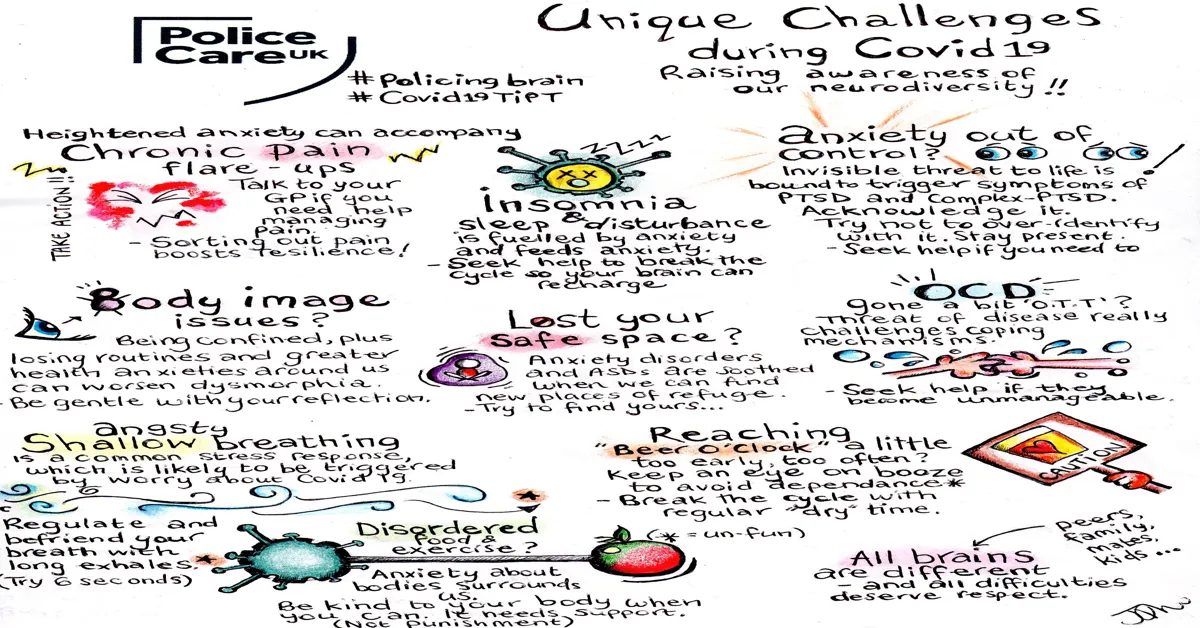 Police
Care UK
# Policing brain
# Covid19TiPT
Unique Challenges
during Covid 19
Raising awareness of
our neurodiversity !!
Heightened anxiety can accompany
Chronic Pain
flare-ups
TAKE ACTION!!
Talk to your
GP if you
need help
managing
pain.
- Sorting out pain
boosts resilience!
zzzz
insomnia
&
sleep disturbance
is fuelled by anxiety
and feeds anxiety.
- Seek help to break the
cycle so your brain can
recharge
anxiety out of
control?
Invisible threat to life is
bound to trigger symptoms of
PTSD and Complex-PTSD.
Acknowledge it.
Try not to over-identify
with it. Stay present.
- Seek help if you need to
Body image
issues?
Being confined, plus
losing routines and greater
health anxieties around us
can worsen dysmorphia.
- Be gentle with your reflection.
Lost your
Safe space?
Anxiety disorders
and ASDs are soothed
when we can find
new places of refuge.
- Try to find yours...
OCD
gone a bit 'O.T.T'?
Threat of disease really
challenges coping
mechanisms.
- Seek help if they
become unmanageable.
angsty
Shallow breathing
is a common stress response,
which is likely to be triggered
by worry about Covid 19.
Regulate and
befriend your
breath with
long exhales.
(Try 6 seconds)
Disordered
food &
exercise?
Anxiety about
bodies surrounds
us.
Be kind to your body when
you can. It needs support.
(Not punishment)
Reaching
"Beer O'Clock" a little
too early, too often?
Keep an eye on booze
to avoid dependance*
- Break the cycle with
regular "dry" time.
(* = un-fun)
CAUTION
peers,
family,
mates,
kids...
All brains
are different
- and all difficulties
deserve respect.